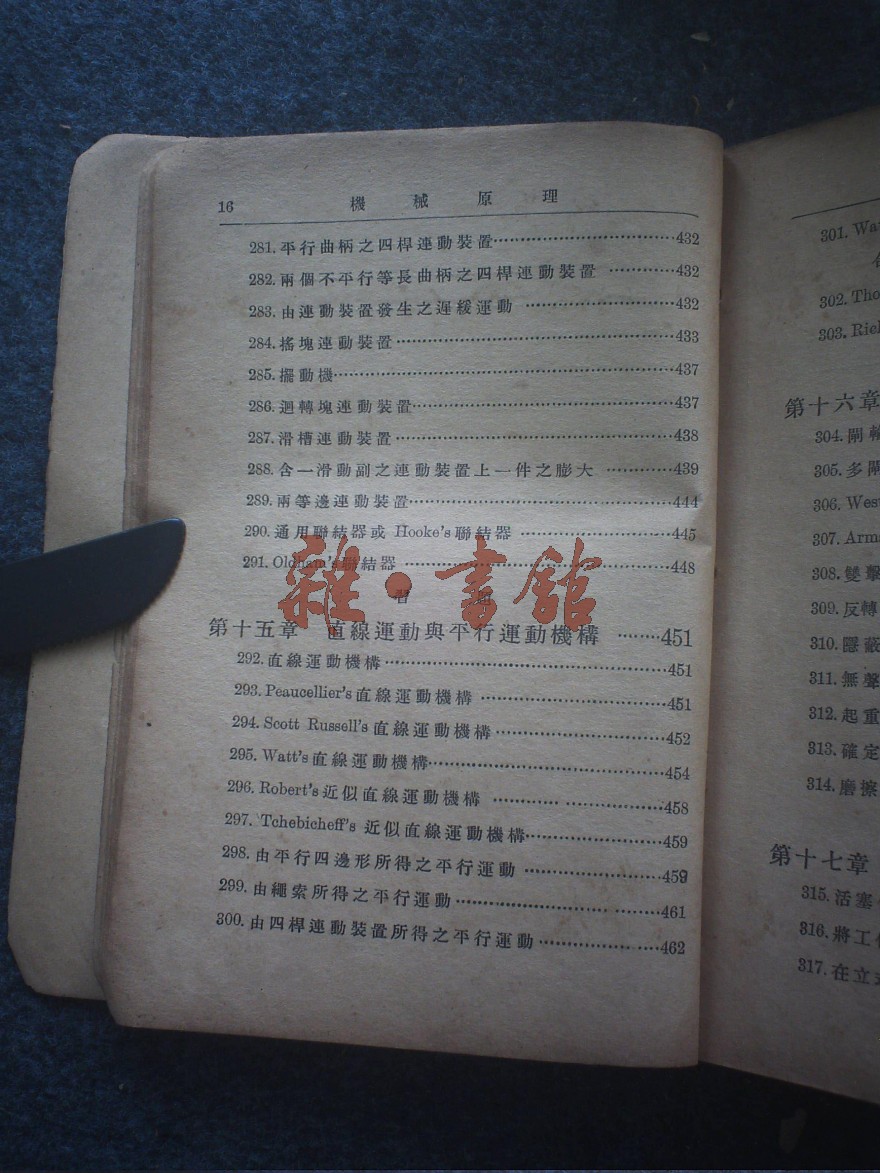 16 機械原理
281.平行曲柄之四桿連動裝置……432
282.兩個不平行等長曲柄之四桿連動裝置……432
283.由連動裝置發生之遲緩運動……432
284.搖塊連動裝置……433
285.擺動機……437
286.迴轉塊連動裝置……437
287.滑槽連動裝置……438
288.含一滑動副之連動裝置上一件之膨大……439
289.兩等邊連動裝置……444
290.通用聯結器或 Hooke's聯結器……445
291.Oldham's聯結器……448
習題
第十五章 直線運動與平行運動機構……451
292.直線運動機構……451
293.Peaucellier's直線運動機構……451
294.Scott Russell's直線運動機構……452
295.Watt's直線運動機構……454
296.Robert's近似直線運動機構……458
297.Tchebicheff's 近似直線運動機構……459
298.由平行四邊形所得之平行運動……459
299.由繩索所得之平行運動……461
300.由四桿連動裝置所得之平行運動……462
雜·書館
301.
302.
303.
第十六章
304.閘輪
305.多閘
306.
307.
308.雙擊
309.反轉
310.隱蔽
311.無聲
312.起重
313.確定
314.磨擦
第十七章
315.活塞
316.將工
317.在立